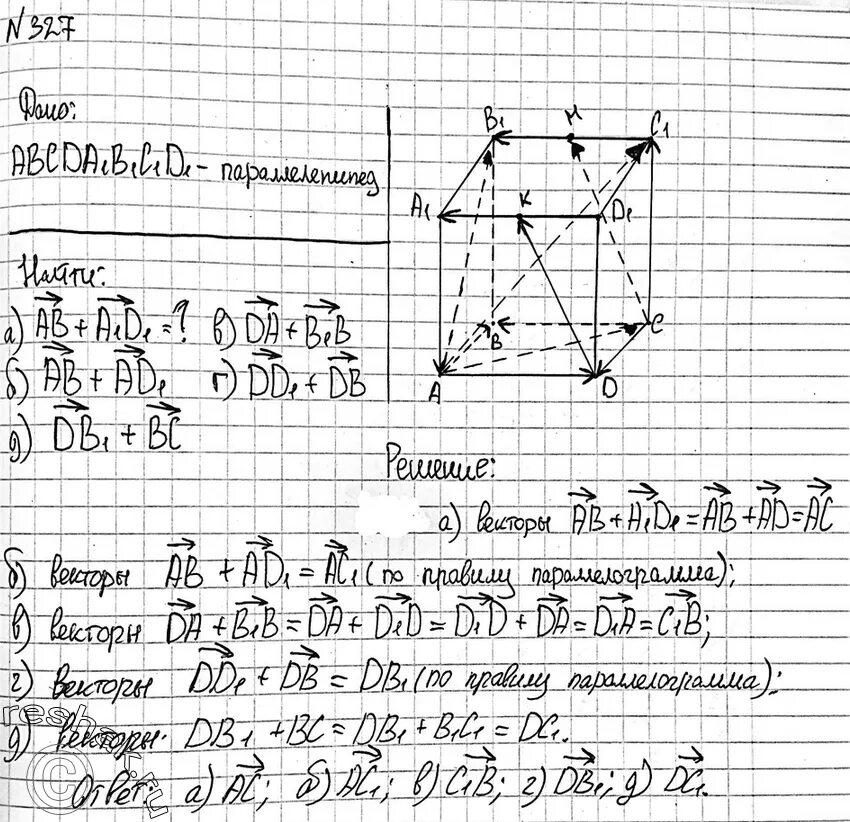 N 327
Дано:
ABCDA₁B₁C₁D₁ – параллелепипед
Найти:
а) AB + A₁D₁ = ? в) DA + B₁B
б) AB + AD₁ г) DD₁ + DB
д) DB₁ + BC
B₁ M C₁
A₁ K D₁
B C
A D
Решение:
а) векторы AB + A₁D₁ = AB + AD = AC
б) векторы AB + AD₁ = AC₁ (по правилу параллелограмма);
в) векторы DA + B₁B = DA + D₁D = D₁D + DA = D₁A = C₁B;
г) векторы DD₁ + DB = DB₁ (по правилу параллелограмма);
д) векторы DB₁ + BC = DB₁ + B₁C₁ = DC₁.
Ответ: а) AC; б) AC₁; в) C₁B; г) DB₁; д) DC₁.
reshak.ru
©